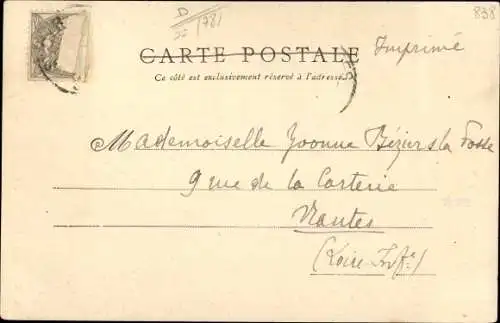 838
D
1781
CARTE POSTALE
Imprimé
Ce côté est exclusivement réservé à l'adresse
Mademoiselle Yvonne Béziers la Fosse
9 rue de la Casterie
Nantes
(Loire-Infre)